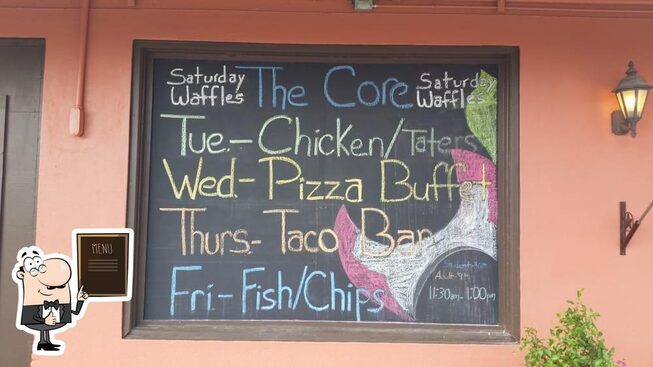 Saturday Waffles
The Core
Saturday Waffles
Tue.- Chicken/Taters
Wed- Pizza Buffet
Thurs- Taco Bar
Fri- Fish/Chips
11:30am- 1:00pm
MENU